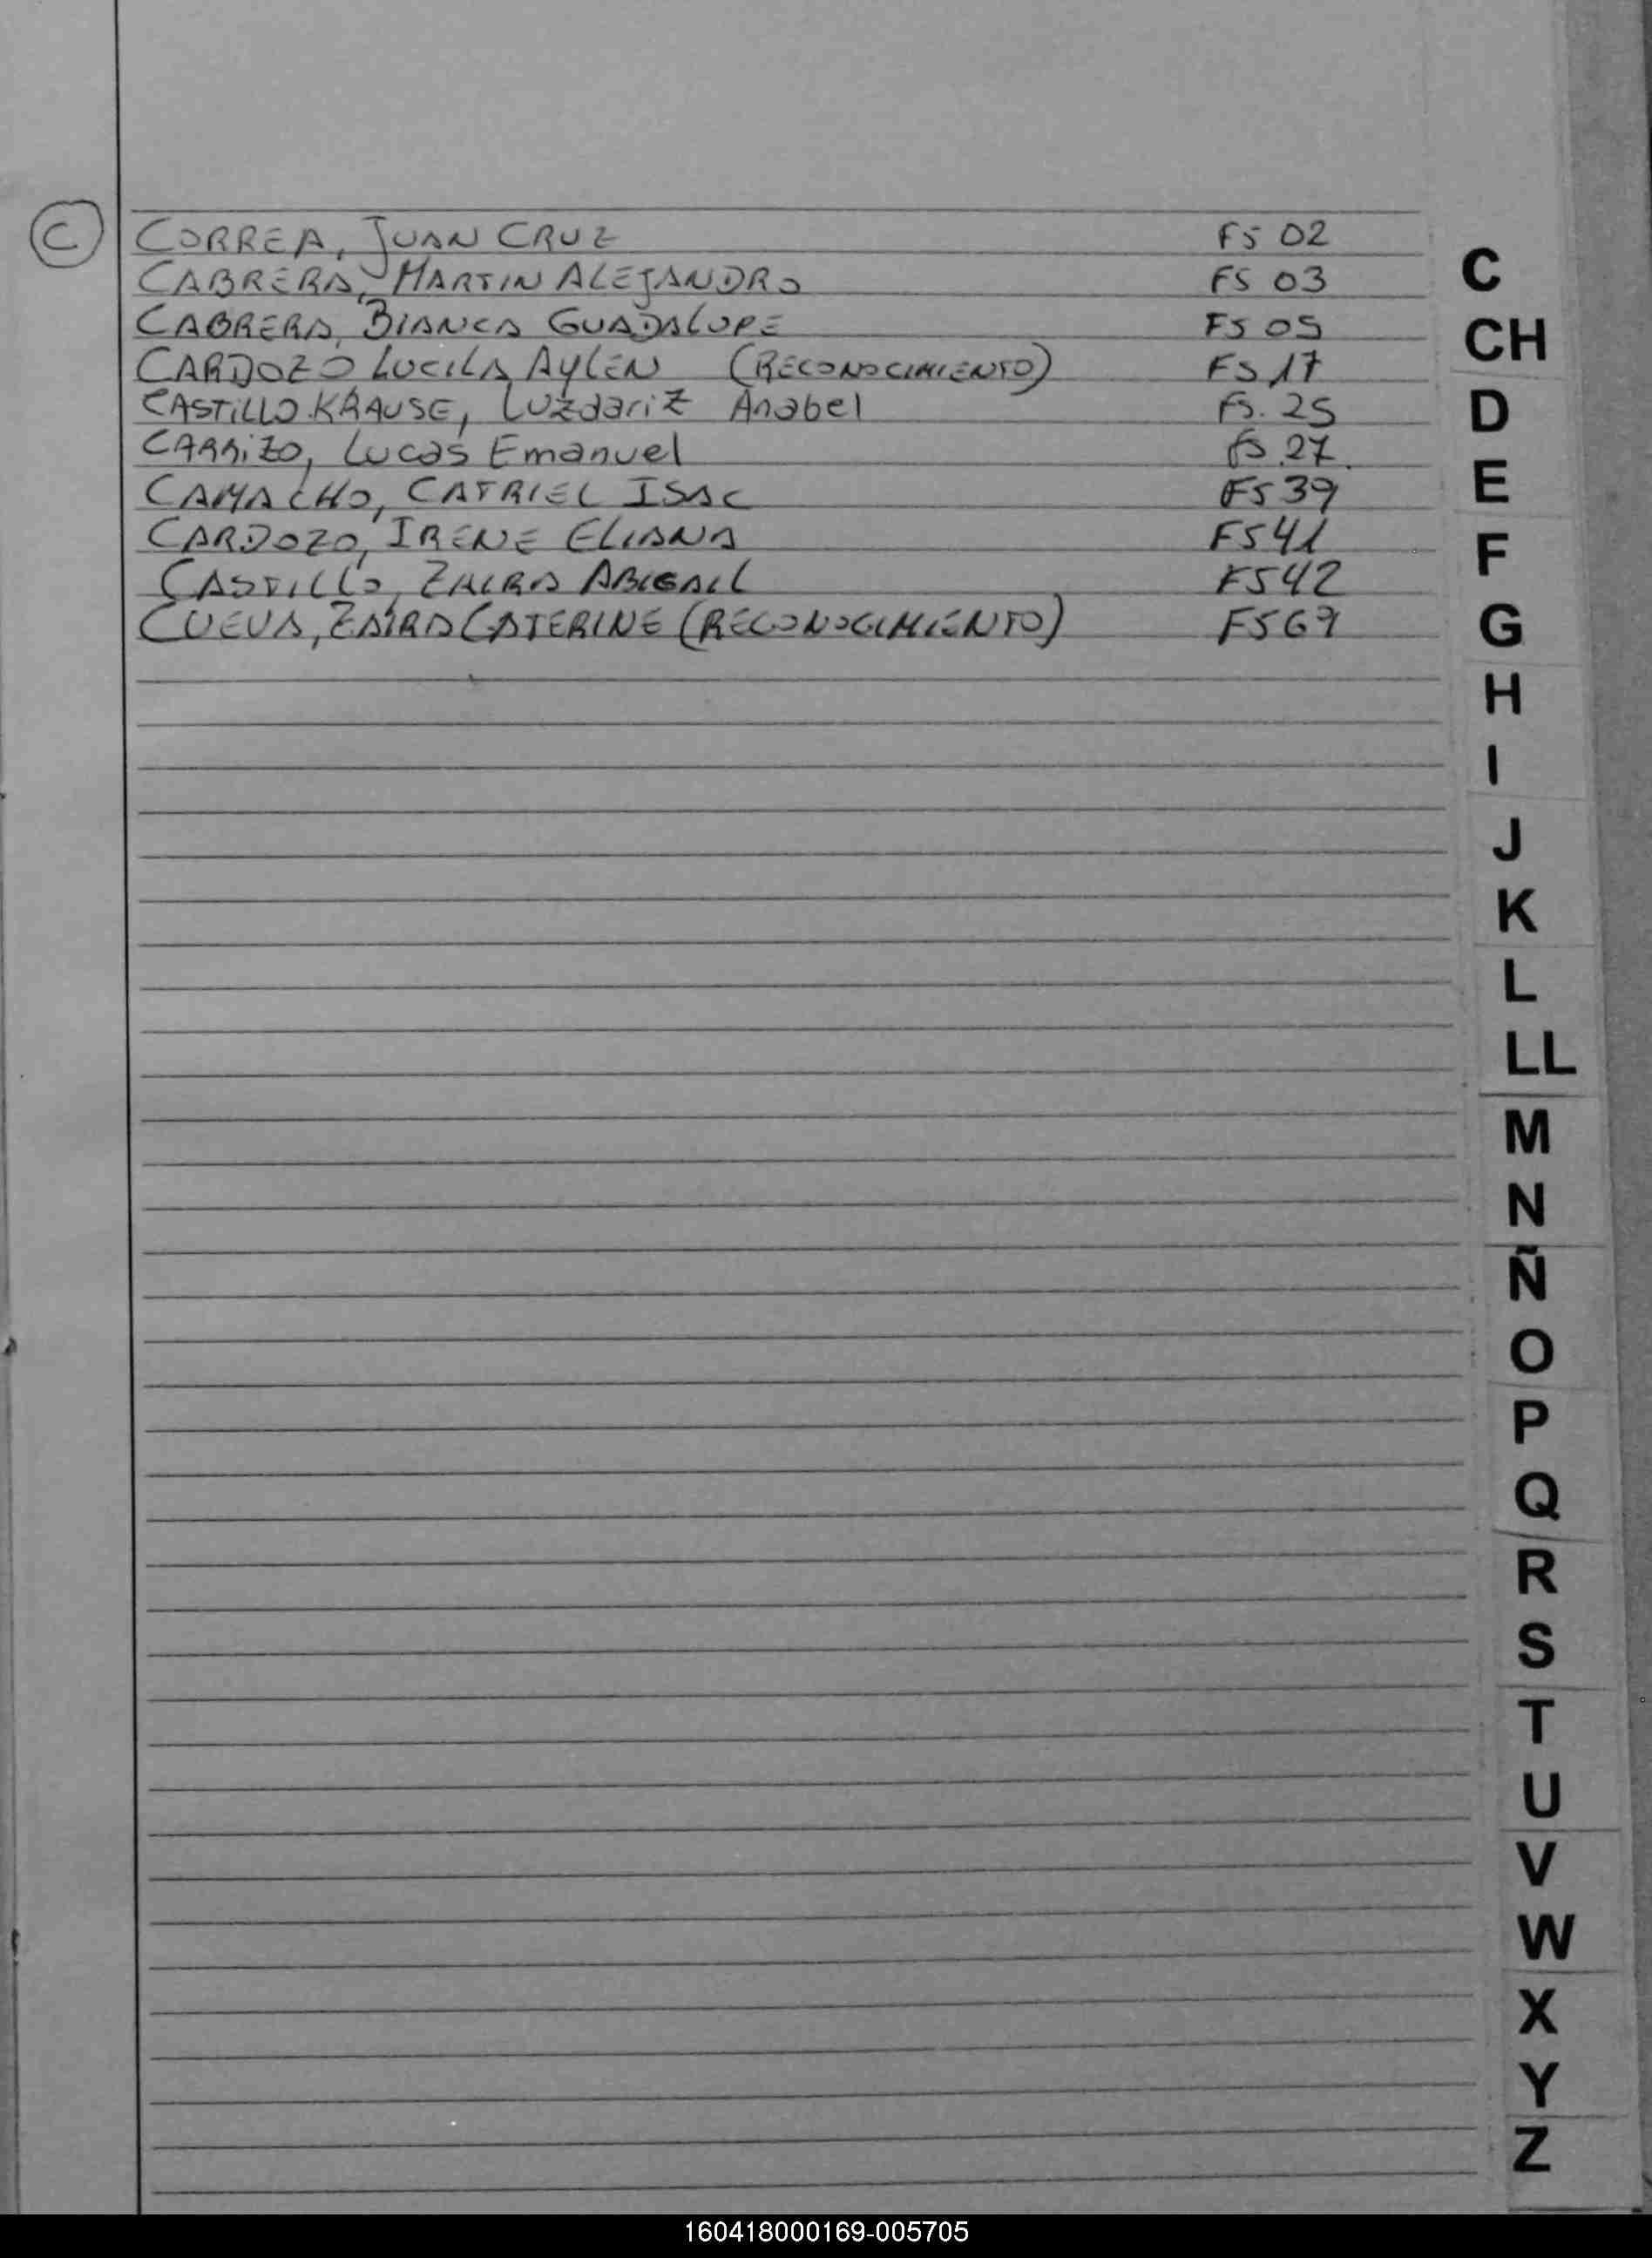 C
CORREA, JUAN CRUZ FS 02
CABRERA, MARTIN ALEJANDRO FS 03
CABRERA, BIANCA GUADALUPE FS 05
CARDOZO LUCILA AYLEN (RECONOCIMIENTO) FS 17
CASTILLO KRAUSE, Luzdariz Anabel FS. 25
CARRIZO, Lucas Emanuel FS. 27.
CAMACHO, CATRIEL ISAC FS 39
CARDOZO, IRENE ELIANA FS 41
CASTILLO, ZAIRA ABIGAIL FS 42
CUEVA, ZAIRA CATERINE (RECONOCIMIENTO) FS 69
C
CH
D
E
F
G
H
I
J
K
L
LL
M
N
Ñ
O
P
Q
R
S
T
U
V
W
X
Y
Z
160418000169-005705